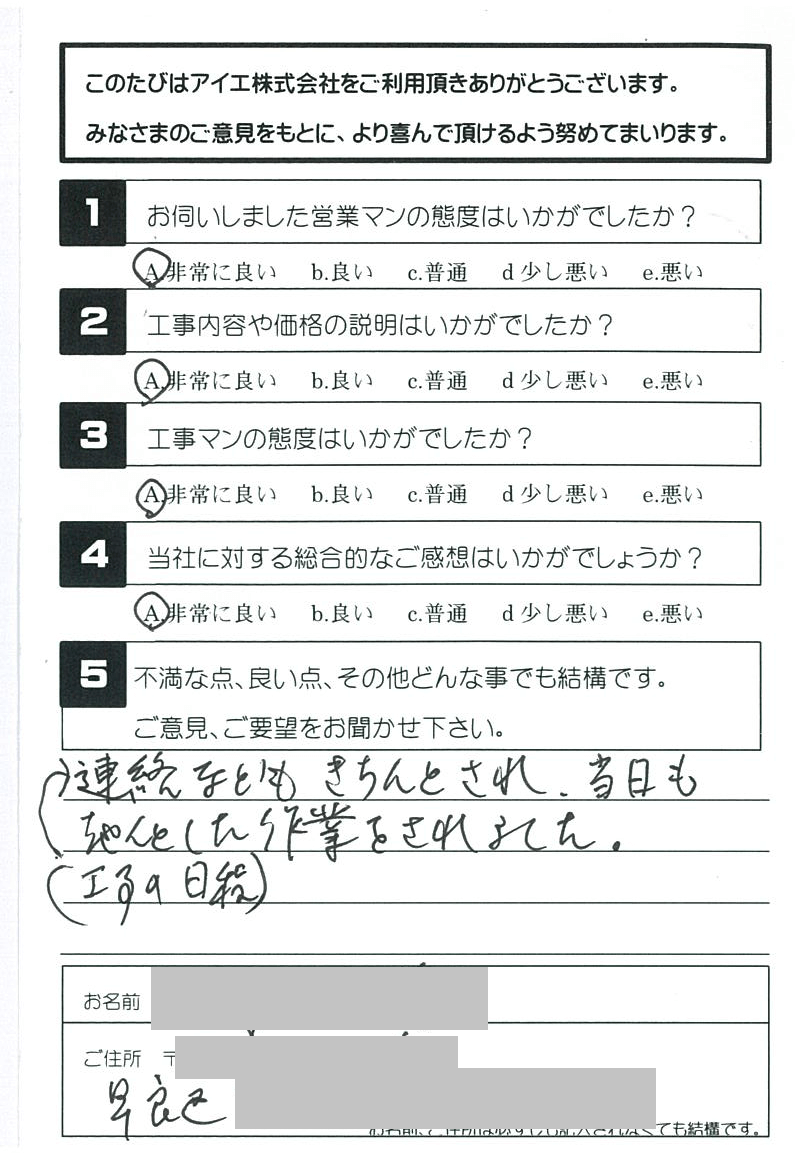 このたびはアイエ株式会社をご利用頂きありがとうございます。
みなさまのご意見をもとに、より喜んで頂けるよう努めてまいります。
1 お伺いしました営業マンの態度はいかがでしたか？
A.非常に良い b.良い c.普通 d 少し悪い e.悪い
2 工事内容や価格の説明はいかがでしたか？
A.非常に良い b.良い c.普通 d 少し悪い e.悪い
3 工事マンの態度はいかがでしたか？
A.非常に良い b.良い c.普通 d 少し悪い e.悪い
4 当社に対する総合的なご感想はいかがでしょうか？
A.非常に良い b.良い c.普通 d 少し悪い e.悪い
5 不満な点、良い点、その他どんな事でも結構です。
ご意見、ご要望をお聞かせ下さい。
連絡なども きちんとされ、当日も
ちゃんとした作業をされました。
(工事の日程)
お名前
ご住所 〒
早良区
お名前、ご住所は必ずしも記入されなくても結構です。